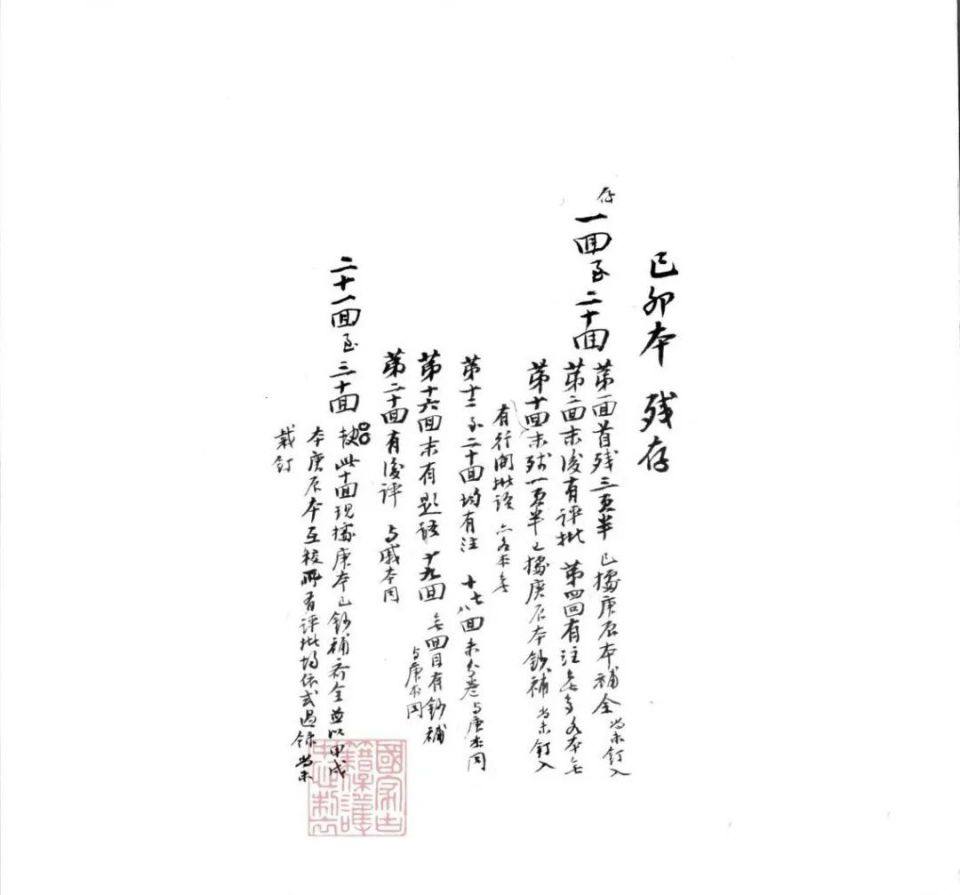 己卯本 残存
存
一回至二十回
第一回首残三页半 已據庚辰本補全 尚未釘入
第二回末後有評批 第四回有注 各本無
第十回末残一页半 已據庚辰本鈔補 尚未釘入
有行間批語 各本無
第十二至二十回均有注 十七八回未分卷 与庚本同
第十六回末有題語 十九回無回目有鈔補
与庚本同
第二十回有後評 与戚本同
二十一回至三十回
缺此十回現據庚本已鈔補齊全 並以甲戌
本庚辰本互校所有評批均依式過錄 尚未
裁釘
國家古籍保護中心制